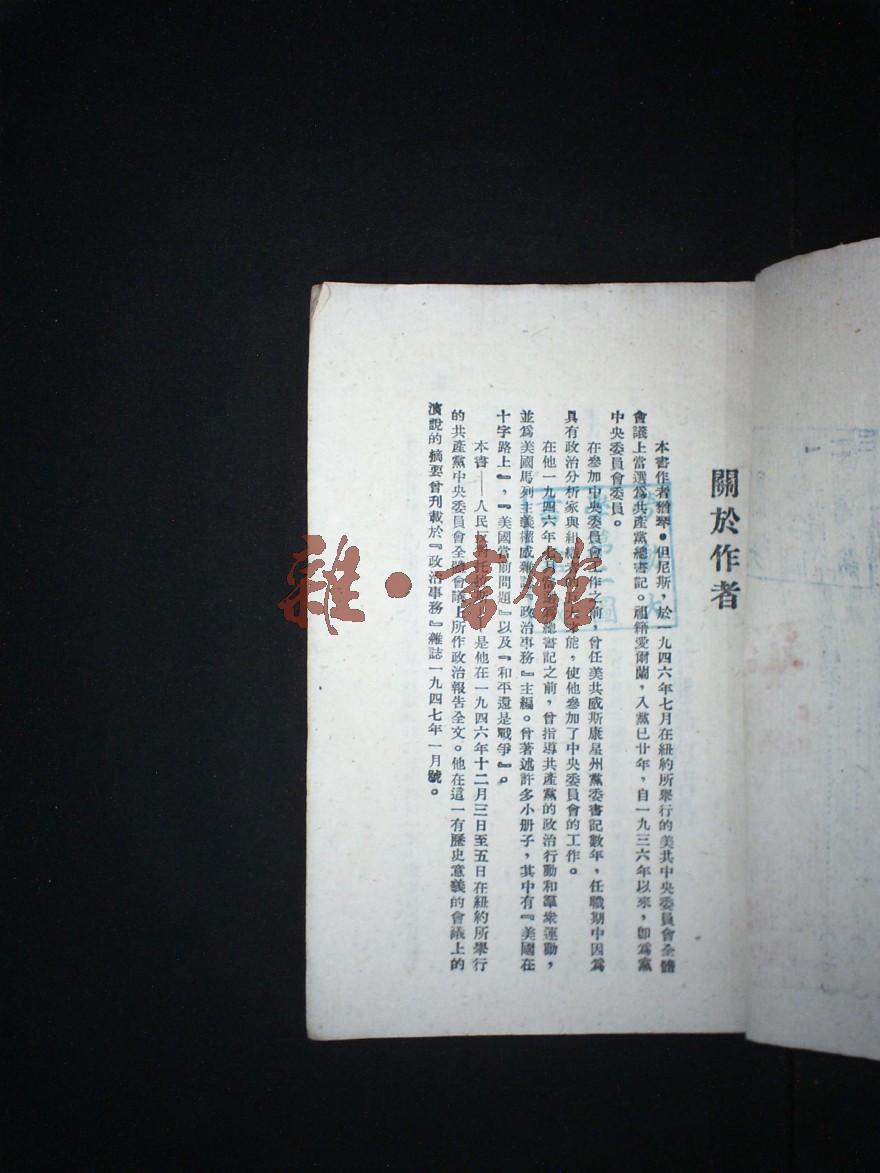 關於作者
本書作者猶琴。但尼斯，於一九四六年七月在紐約所舉行的美共中央委員會全體
會議上當選爲共產黨總書記。祖籍愛爾蘭，入黨已廿年，自一九三六年以來，卽爲黨
中央委員會委員。
在參加中央委員會工作之前，曾任美共威斯康星州黨委書記數年，任職期中因爲
具有政治分析家與組織者的才能，使他參加了中央委員會的工作。
在他一九四六年七月總書記之前，曾指導共產黨的政治行動和羣衆運動，
並爲美國馬列主義權威雜誌『政治事務』主編。曾著述許多小册子，其中有『美國在
十字路上』，『美國當前問題』以及『和平還是戰爭』。
本書——人民反對托拉斯——是他在一九四六年十二月三日至五日在紐約所舉行
的共產黨中央委員會全體會議上所作政治報告全文。他在這一有歷史意義的會議上的
演說的摘要曾刊載於『政治事務』雜誌一九四七年一月號。
雜·書館